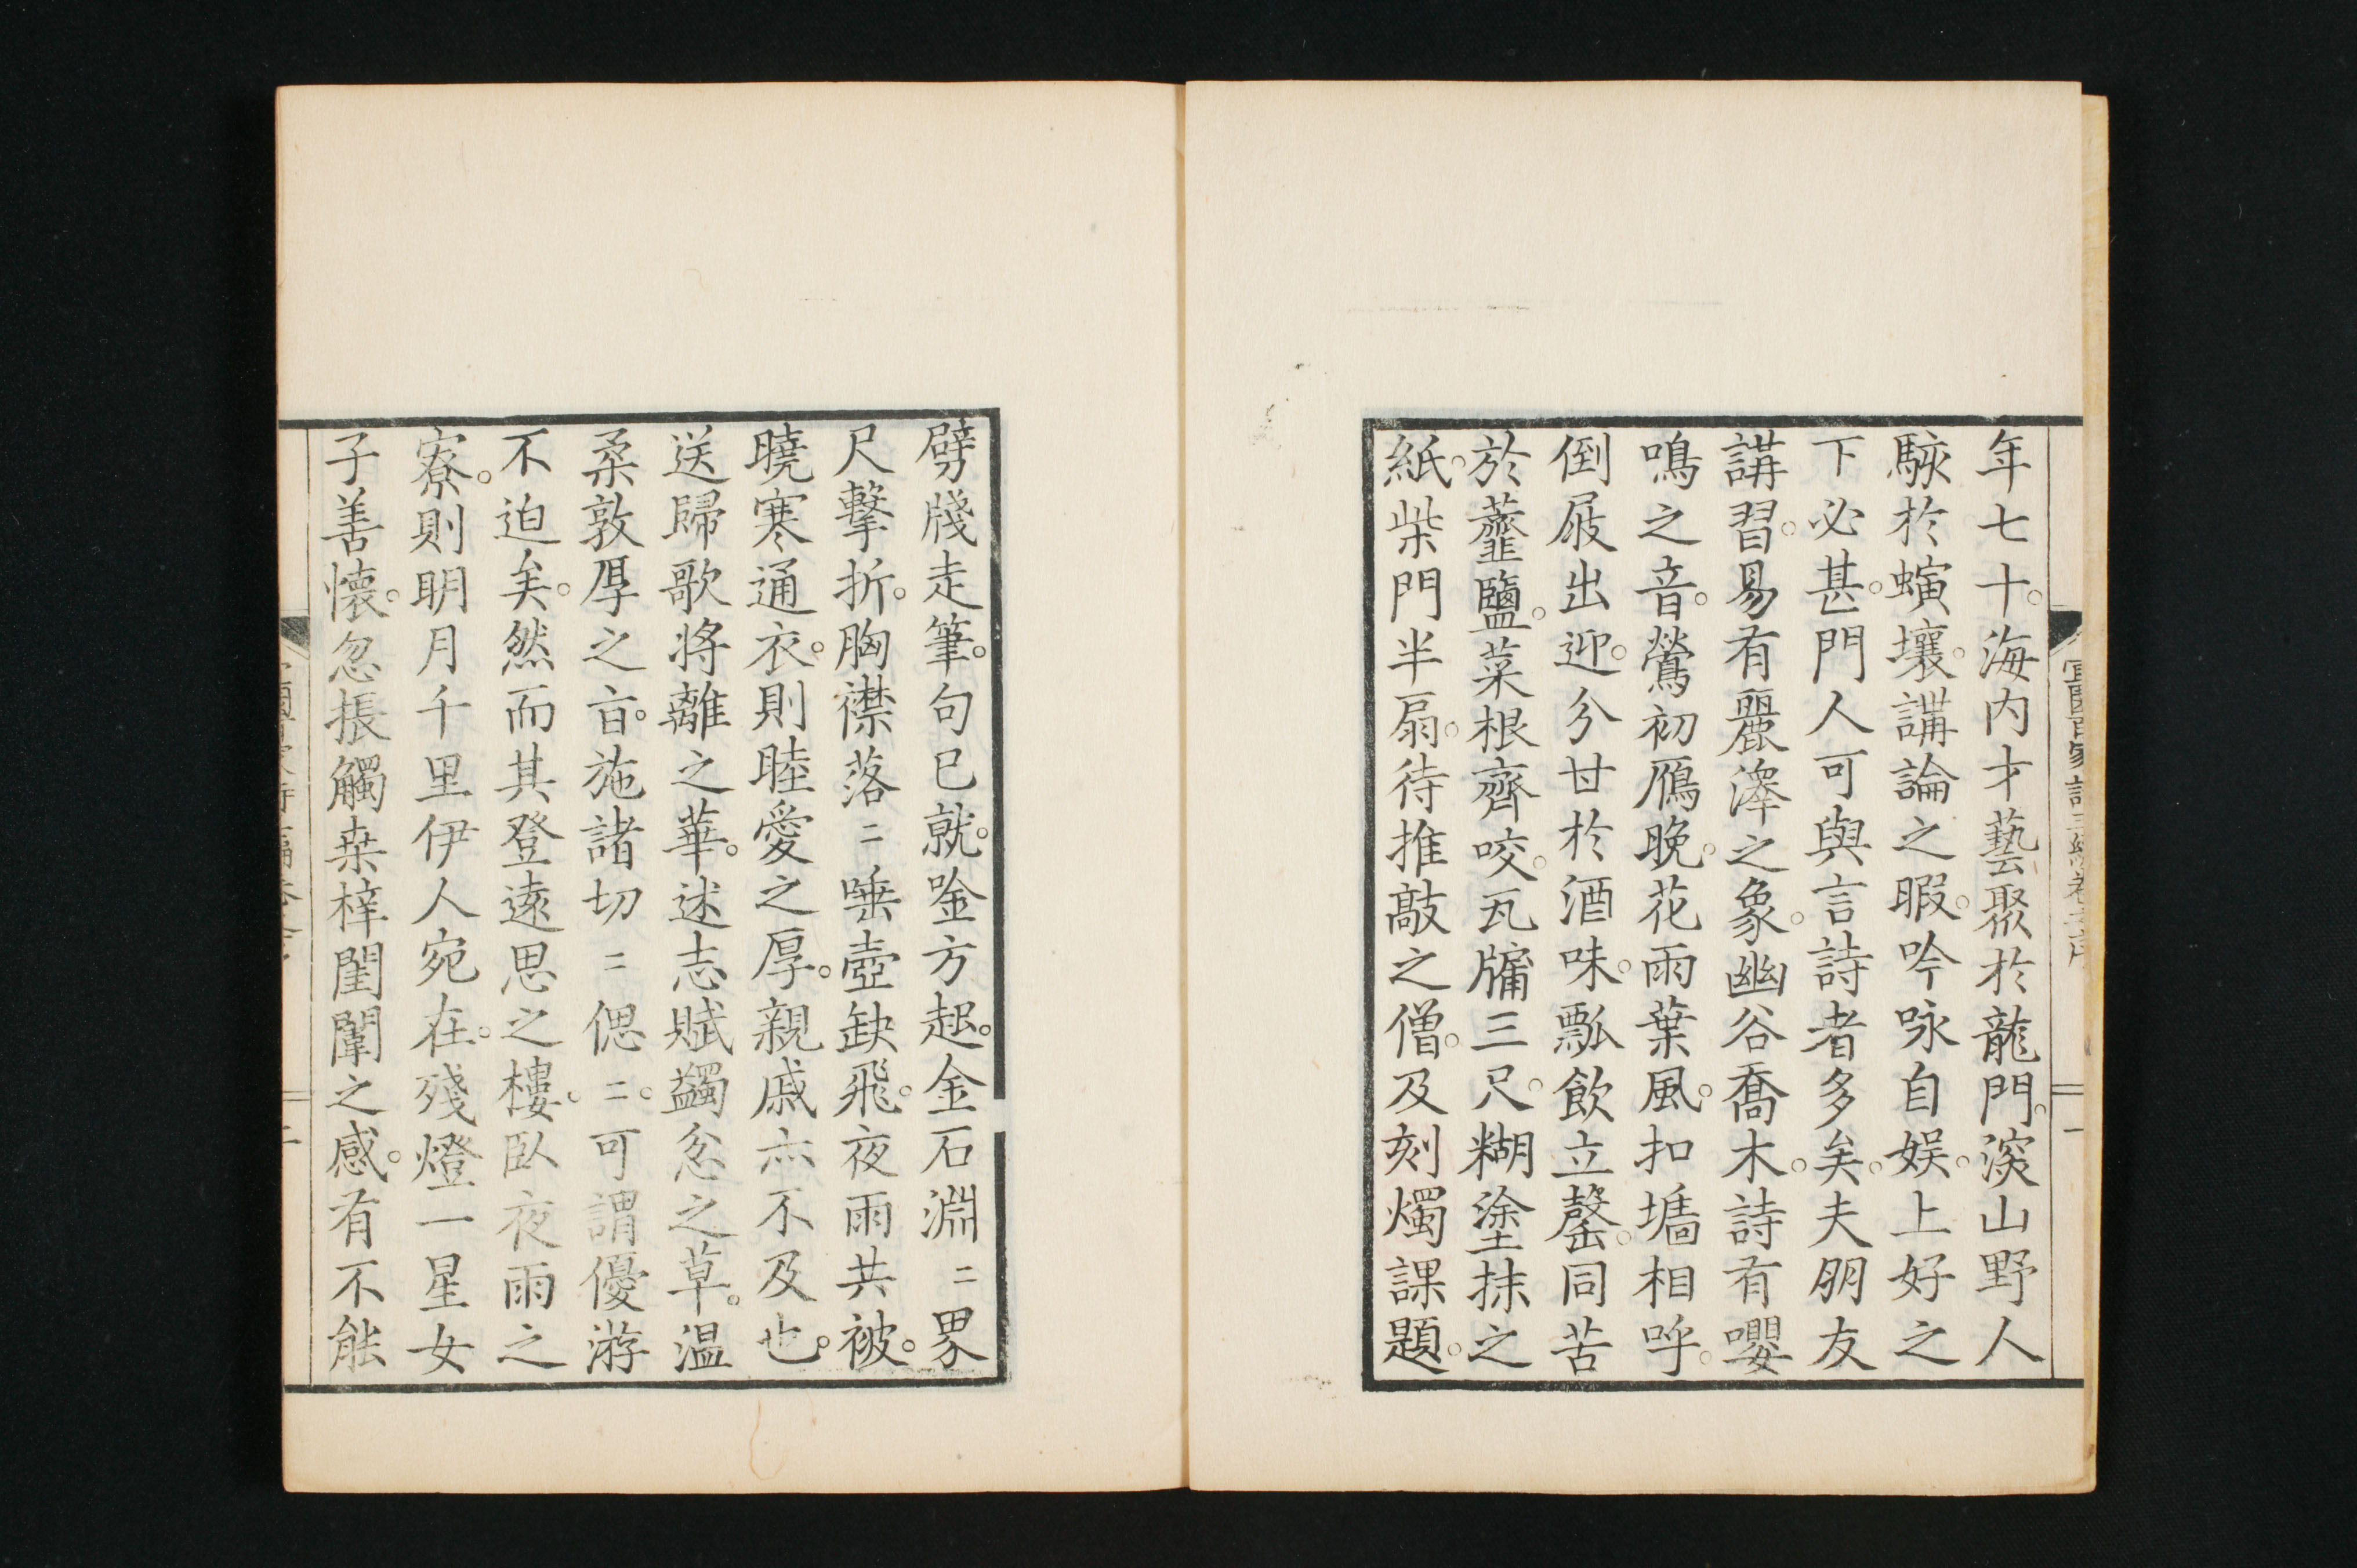 年七十。海内才藝聚於龍門。深山野人
駭於螾壤。講論之暇。吟咏自娯。上好之
下必甚。門人可與言詩者多矣。夫朋友
講習。易有麗澤之象。幽谷喬木。詩有嚶
鳴之音。鶯初鴈晚。花雨葉風。扣墻相呼。
倒屐出迎。分甘於酒味。瓢飲立罄。同苦
於虀鹽。菜根齊咬。瓦牖三尺。糊塗抹之
紙。柴門半扇。待推敲之僧。及刻燭課題。
劈牋走筆。句已就。唫方起。金石淵〻畧
尺擊折。胸襟落〻唾壺缺飛。夜雨共被。
曉寒通衣。則睦愛之厚。親戚亦不及也。
送歸歌將離之華。述志賦蠲忿之草。温
柔敦厚之㫖。施諸切〻偲〻。可謂優游
不迫矣。然而其登遠思之樓。臥夜雨之
寮。則明月千里伊人宛在。殘燈一星女
子善懷。忽掁觸桒梓閨闈之感。有不能